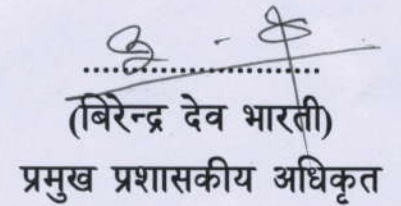 ....................
(बिरेन्द्र देव भारती)
प्रमुख प्रशासकीय अधिकृत